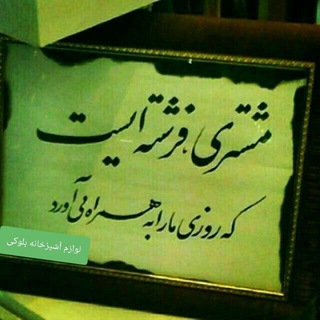 مشتری، فرشته ایست
که روزی ما را به همراه می آورد
لوازم آشپزخانه بلوکی